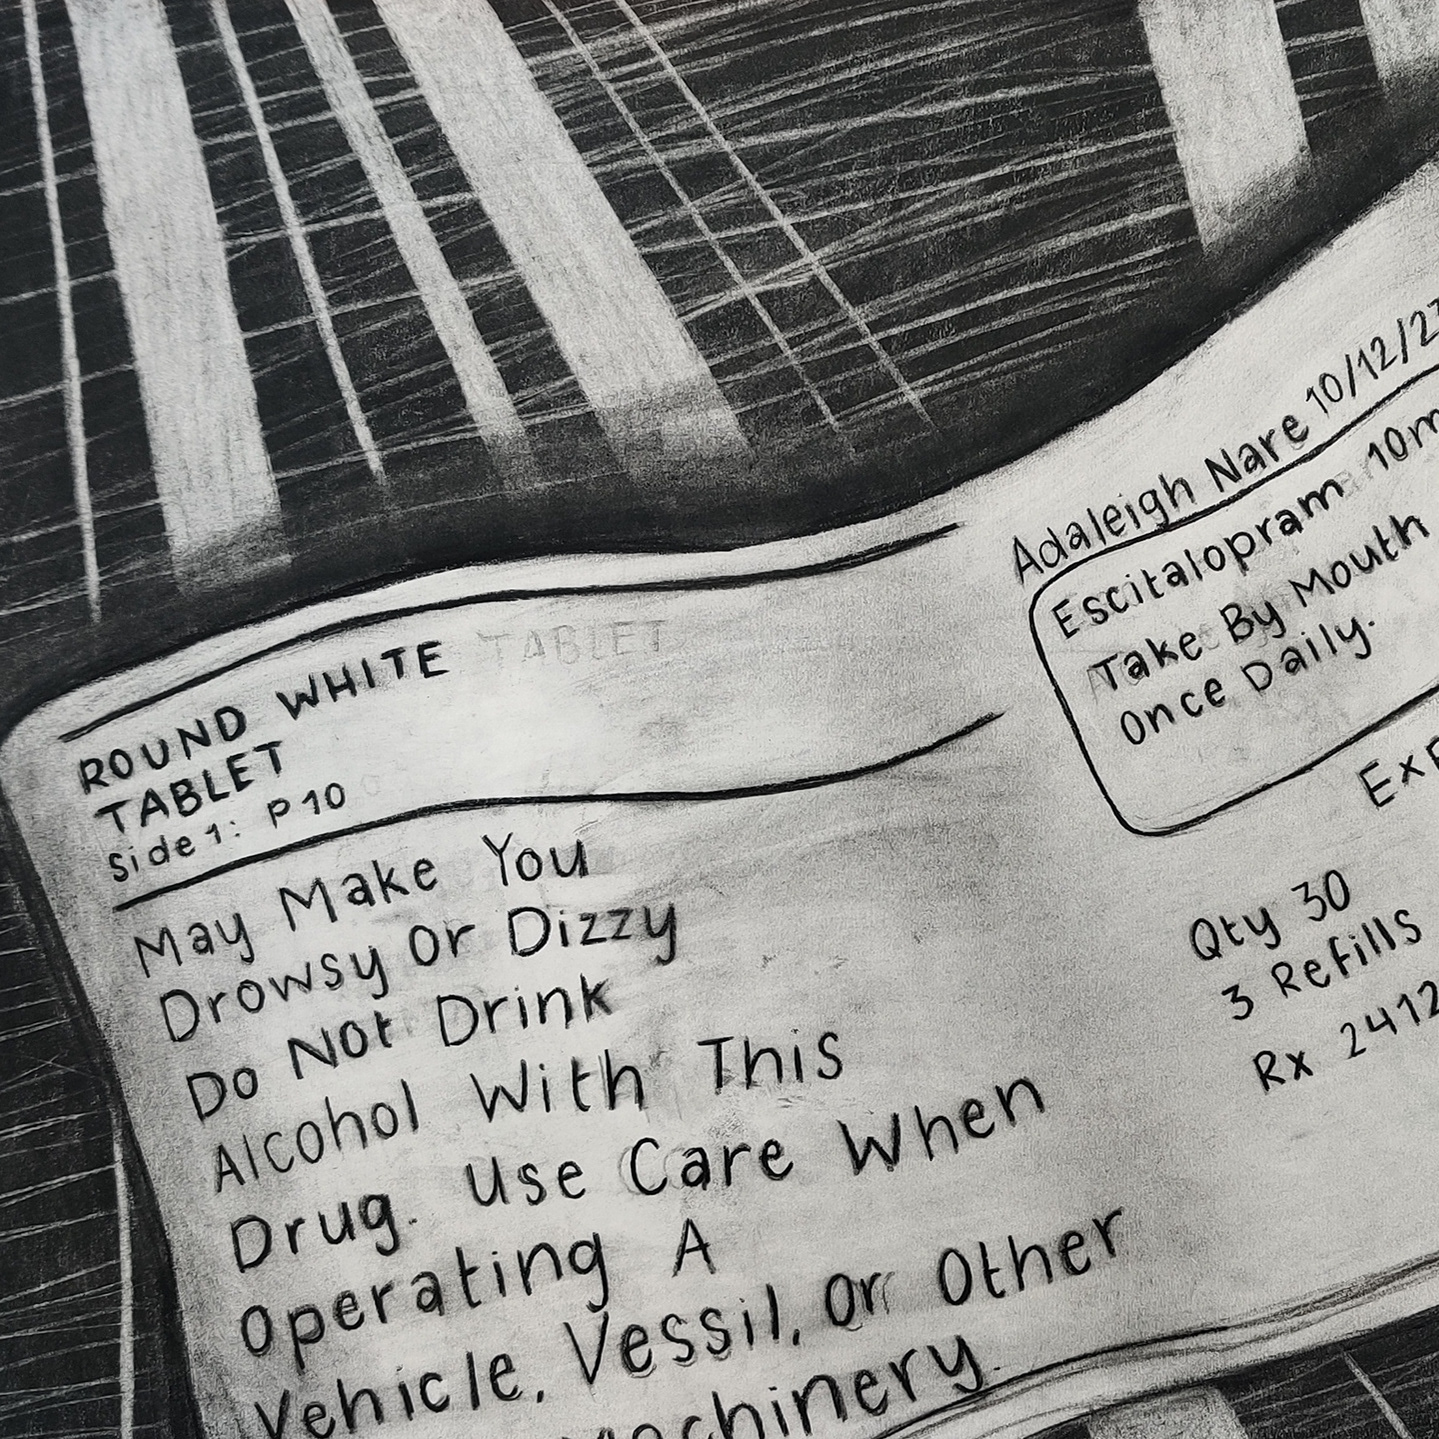 ROUND WHITE TABLET
TABLET
Side 1: P 10
May Make You
Drowsy Or Dizzy
Do Not Drink
Alcohol With This
Drug. Use Care When
Operating A
Vehicle, Vessil, Or Other
Machinery.
Adaleigh Nare 10/12/23
Escitalopram 10m
Take By Mouth
Once Daily.
Exp
Qty 30
3 Refills
Rx 2412